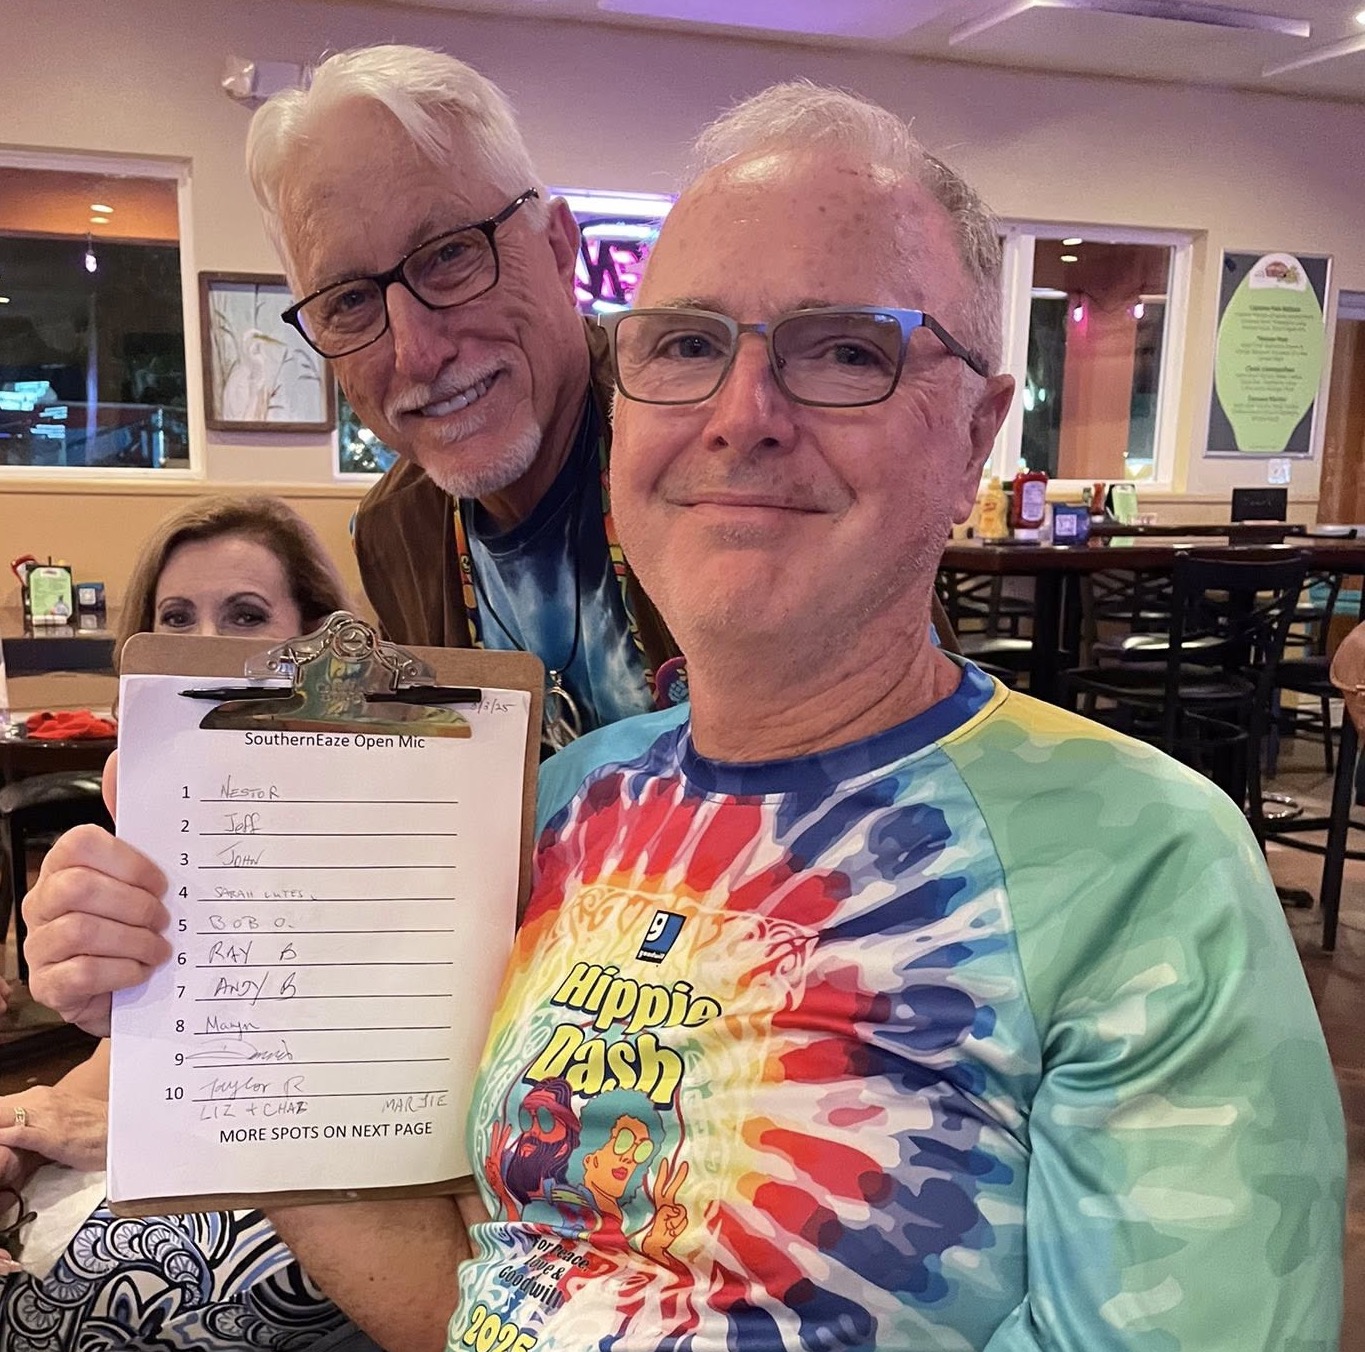 8/3/25
SouthernEaze Open Mic
1 NESTOR
2 Jeff
3 JOHN
4 SARAH LUTES
5 BOB O.
6 RAY B
7 ANDY B
8
9
10 Taylor R
LIZ + CHAZ MARJIE
MORE SPOTS ON NEXT PAGE
g
goodwill
Hippie
Dash
For Peace,
Love &
Goodwill
2025